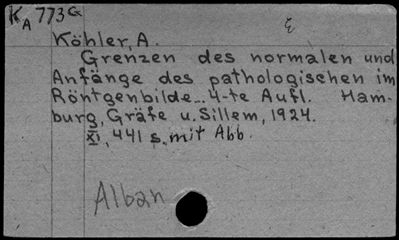 K A 773 G
Köhler, A.
Grenzen des normalen und
Anfänge des pathologischen im
Röntgenbilde... 4-te Aufl. Ham-
burg, Gräfe u. Sillem, 1924.
XI, 441 s. mit Abb.
Alban